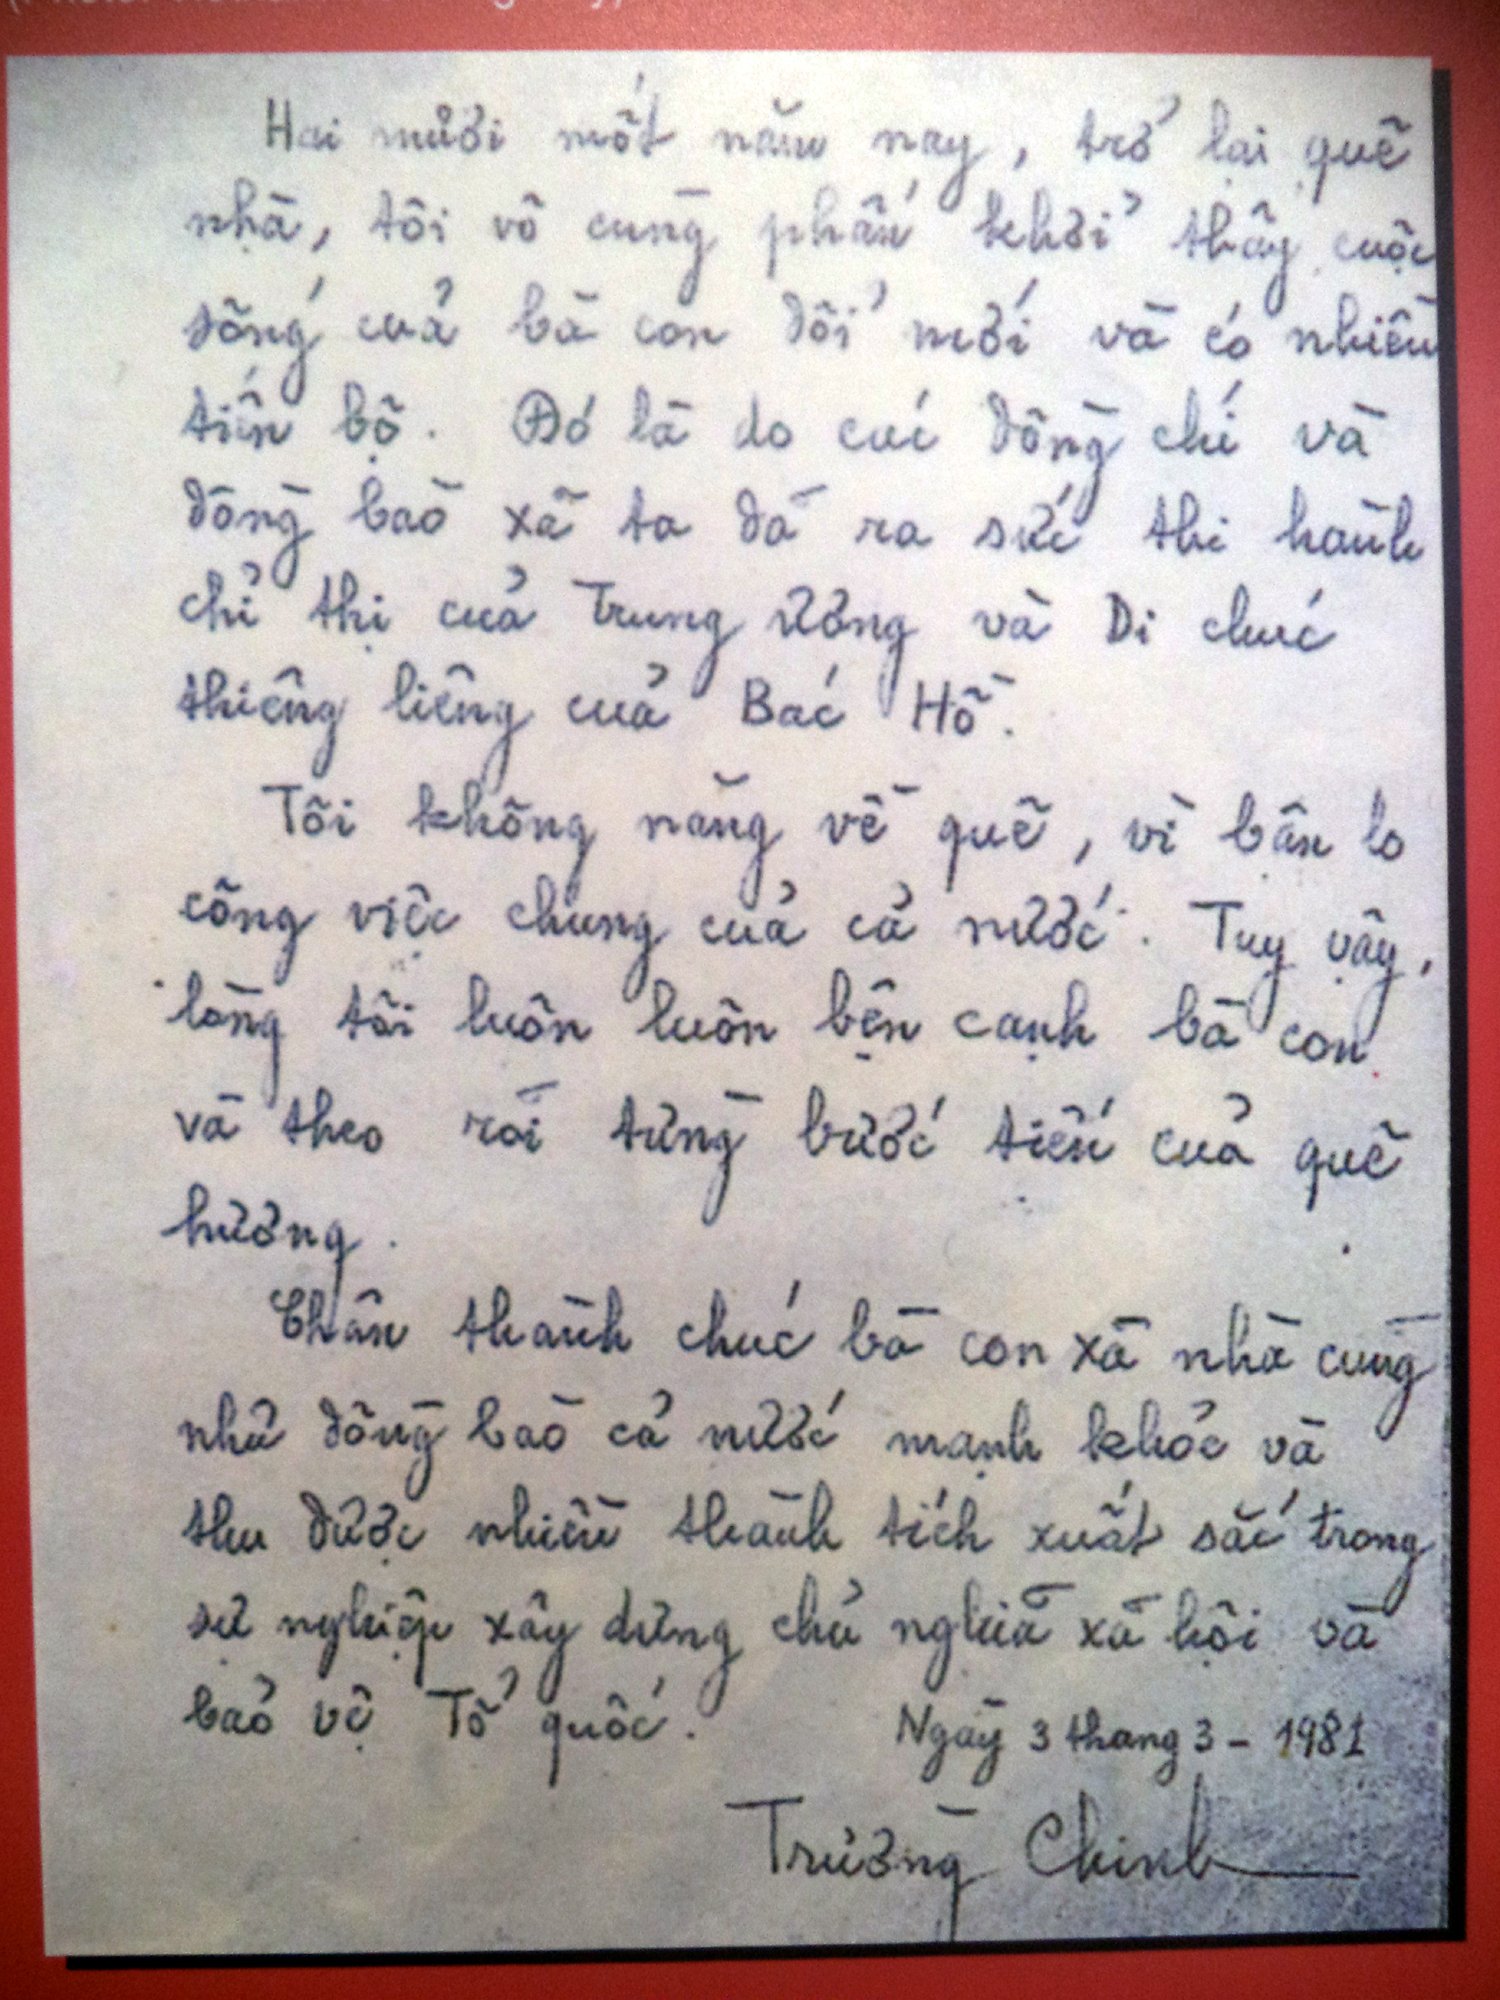 Hai mươi mốt năm nay, trở lại quê
nhà, tôi vô cùng phấn khởi thấy cuộc
sống của bà con đổi mới và có nhiều
tiến bộ. Đó là do các đồng chí và
đồng bào xã ta đã ra sức thi hành
chỉ thị của Trung ương và Di chúc
thiêng liêng của Bác Hồ.
Tôi không năng về quê, vì bận lo
công việc chung của cả nước. Tuy vậy,
lòng tôi luôn luôn bên cạnh bà con
và theo rõi từng bước tiến của quê
hương.
Chân thành chúc bà con xã nhà cùng
như đồng bào cả nước mạnh khỏe và
thu được nhiều thành tích xuất sắc trong
sự nghiệp xây dựng chủ nghĩa xã hội và
bảo vệ Tổ quốc.
Ngày 3 tháng 3 - 1981
Trường Chinh